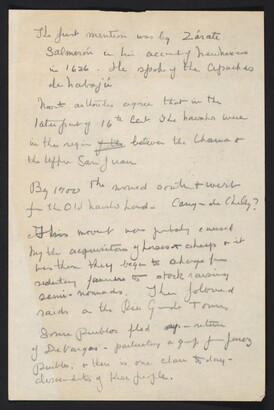 The first mention was by Zárate
Salmerón in his account of New Mexico
in 1626. He spoke of the Apaches
de Nabajú
Most authorities agree that in the
later part of 16th Cent the Navaho were
in the region between the Chama &
the Upper San Juan
By 1700 they moved south & west
for the Old Navaho land. Canyon de Chelly?
This movement was probably caused
by the acquisition of horses & sheep & it
was then they began to change from
sedentary farmers to stock raising
semi-nomads. Then followed
raids on the Rio Grande Towns
Some Pueblos fled return
of DeVargas - particularly a group from Jemez
Pueblo, & there is one clan to-day -
descendents of these people.